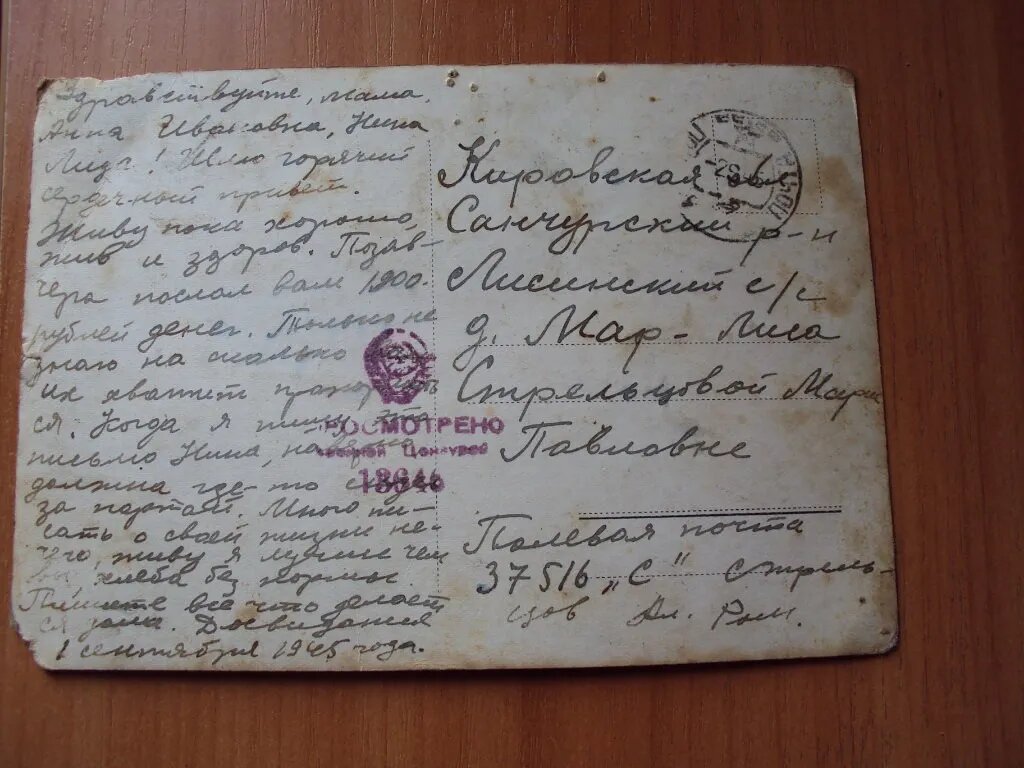 Здравствуйте, мама,
Анна Ивановна, Нина
Лида! Шлю горячий
сердечный привет.
Живу пока хорошо,
жив и здоров. Позав-
чера послал вам 1200.
рублей денег. Только не
знаю на сколько
их хватит
ся. Когда я пишу это
письмо Нина,
должна где-то
за партой. Много пи-
сать о своей жизни не-
чего, живу я лучше чем
вы, хлеба без нормы.
Пишите все что делает
ся дома. Досвидания
1 сентября 1945 года.
Кировская обл
Санчурский р-н
Лисинский с/с
д. Мар-Лиса
Стрельцовой Марии
Павловне
Полевая почта
37516 „С" Стрель-
цов Вл. Ром.
ПРОСМОТРЕНО
Военной Цензурой
13646